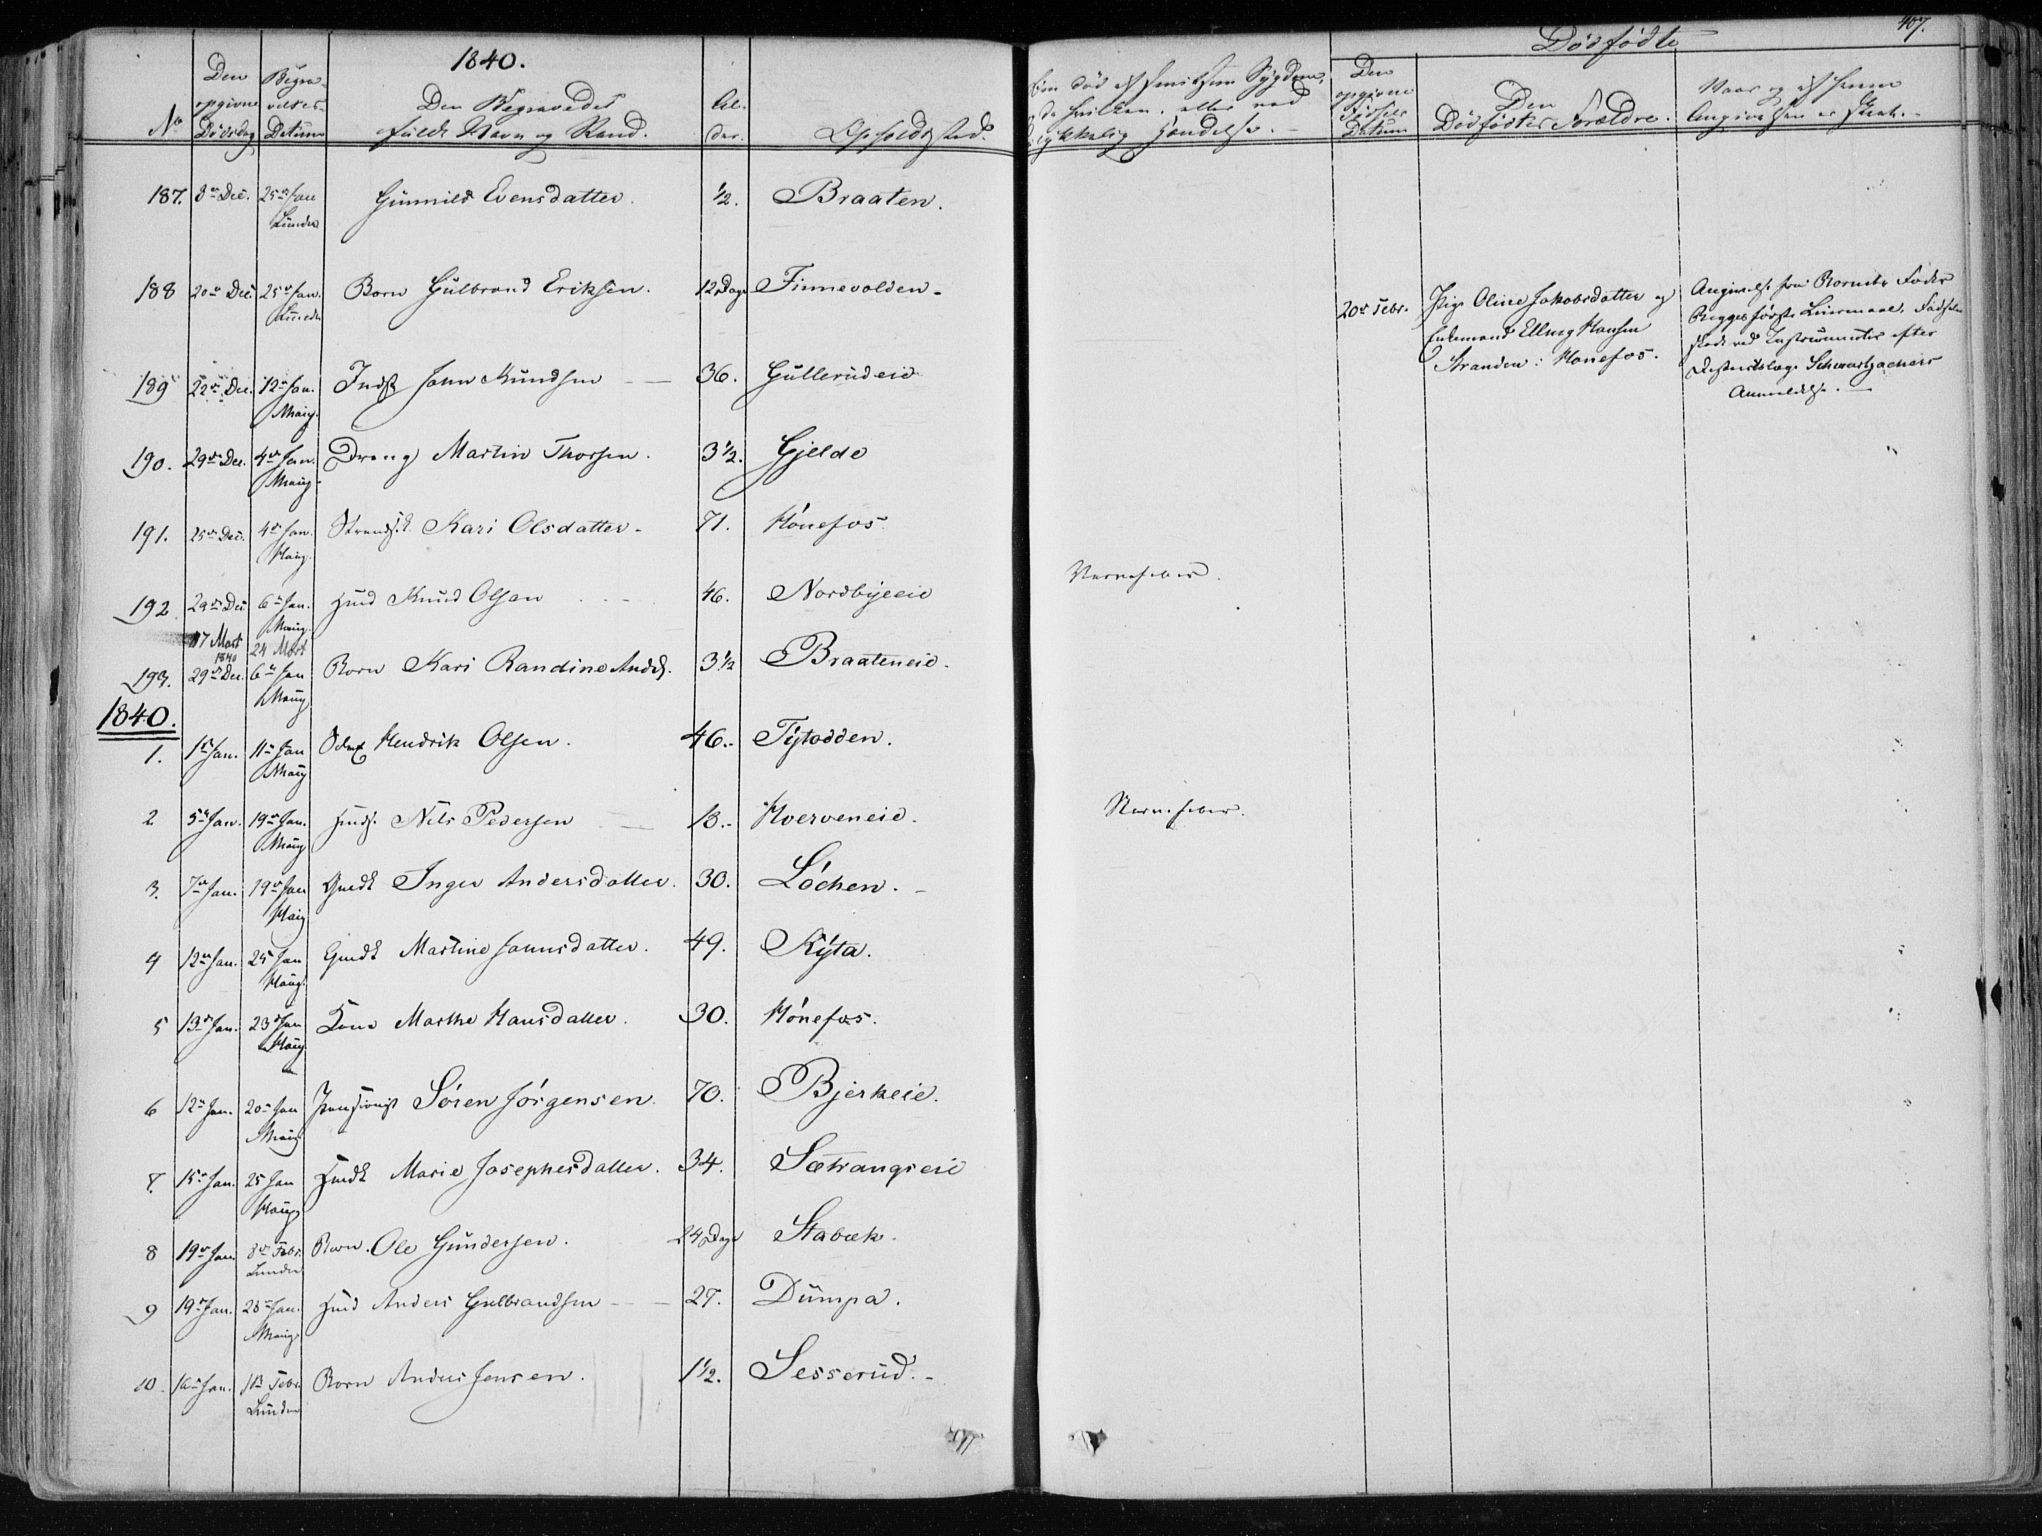 1840.
Dødfødte
407.
No
Den opgivne Dødsdag
Begravelses-Datum
Den Begravedes fulde Navn og Stand.
Alder.
Opholdssted.
Den opgivne Fødsels Datum
Den Dødfødtes Forældre.
Naar og af hvem Angivelsen er skeet.
187. 8de Dec. 25de Jan Lunder Gunnild Evensdatter. 1/2. Braaten.
188 20de Dec. 25de Jan. Lunder Barn Gulbrand Eriksen. 12 Dage Finnevolden
20de Febr. Pige Oline Jakobsdatter og
Enkemand Elling Hansen
Stranden: Hønefos.
Angivelse fra Barnets Fader
Begges første Leiermaal. Fødselen
skede ved Instrumenter efter
Districtslæge Schwartzachers
Anmeldelse.
189 22de Dec. 12te Jan. Haug. Inds John Knudsen 36. Gullerudeie
190. 29de Dec. 4de Jan. Haug. Dreng Martin Thorsen. 3 1/2. Gjelde
191. 25de Dec. 4de Jan. Haug. Kari Olsdatter 71. Hønefos
192 29de Dec 6te Jan. Haug. Knud Olsen 46. Nordbyeeie
Nervefeber.
17 Mart 1840 24 Mart
193. 29de Dec. 6te Jan Haug Barn Kari Randine Andd. 3 1/2 Braateneie.
1840.
1. 1ste Jan. 11te Jan Haug Hendrik Olsen. 46. Tytodden.
2 5te Jan. 19de Jan. Haug Nils Pedersen 13. Hverveneie.
Nervefeber.
3. 7de Jan. 19de Jan Haug Gmdk Inger Andersdatter. 30. Løchen.
4 12te Jan. 25 Jan Haug. Gmdk Martine Jonnsdatter. 49. Kyta.
5 13de Jan. 23de Jan Haug Kone Marthe Hansdatter. 30. Hønefos.
6 12te Jan. 20de Jan Haug Pensionist Søren Jørgensen. 70. Bjerkeie.
7. 15de Jan. 25 Jan Haug Marie Josephesdatter. 34. Sætrangseie
8 19de Jan. 8de Febr. Lunder Barn. Ole Gundersen. 24 Dage Stabæk.
9 19de Jan. 28de Jan. Haug. Anders Gulbrandsen 27. Dumpa.
10. 16de Jan. Febr. Lunder Barn Anders Jensen. 1 1/2. Sesserud.